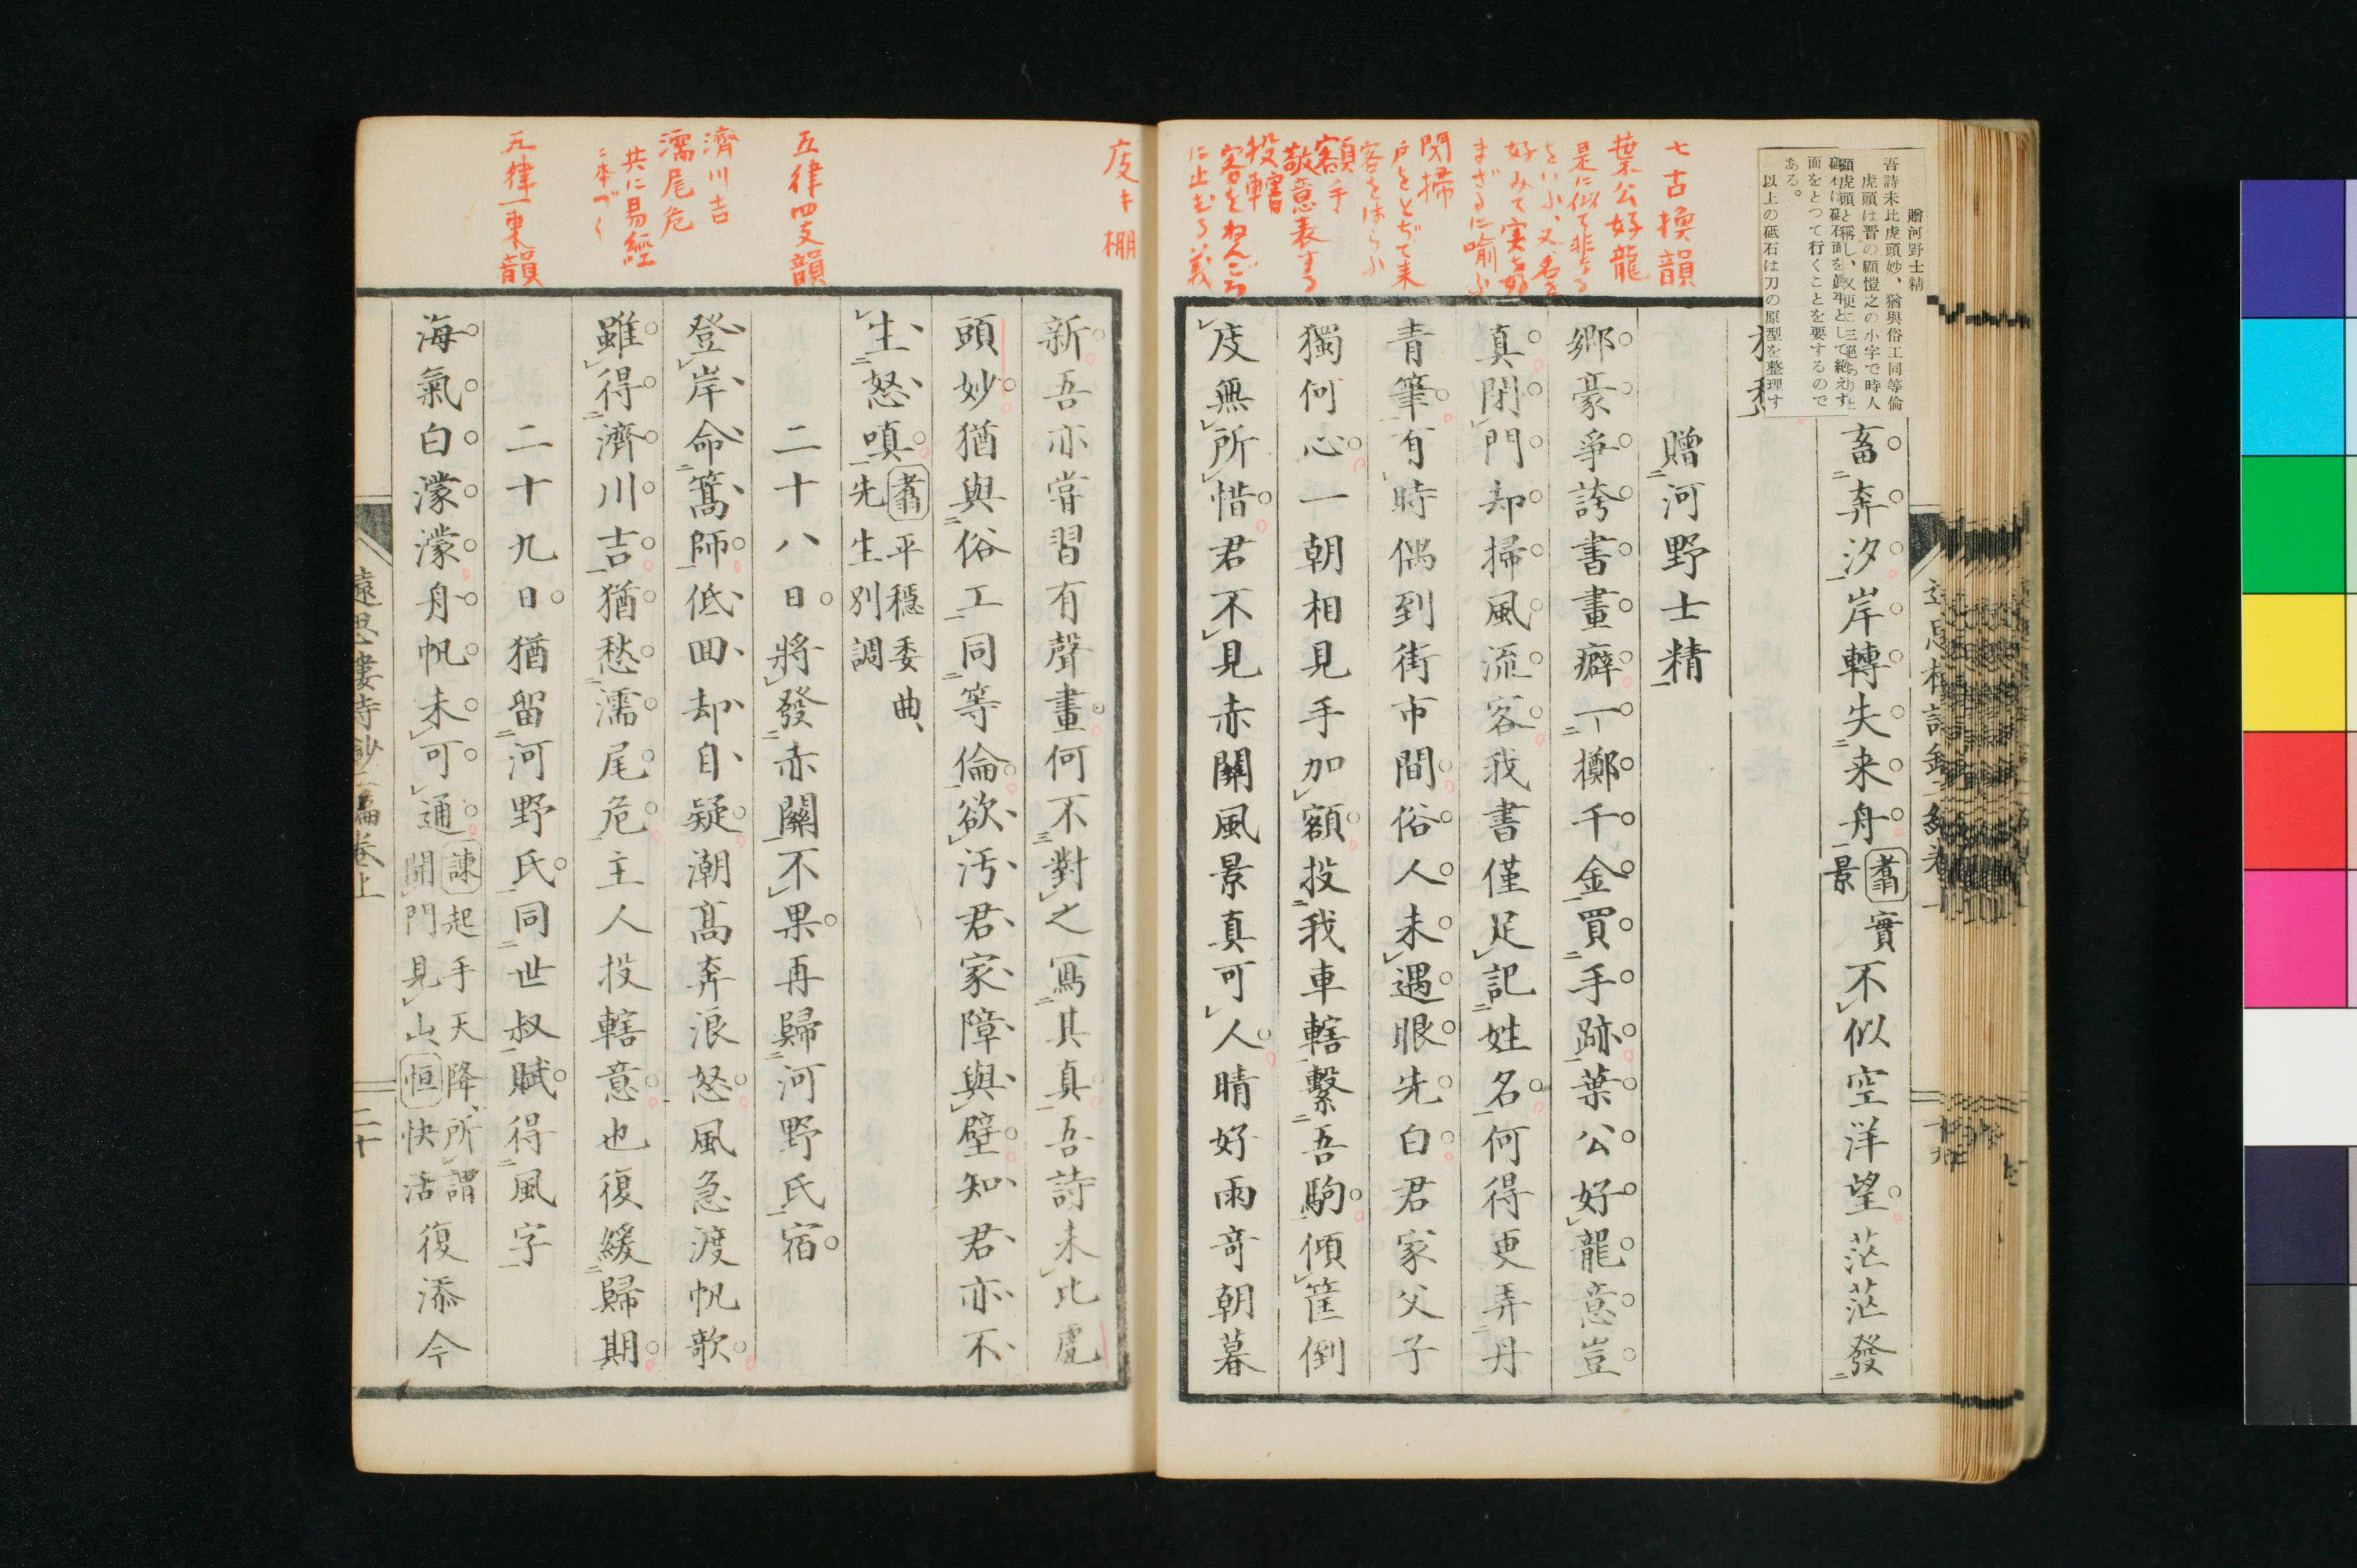 贈河野士精
吾詩未比虎頭妙、猶與俗工同等倫
虎頭は晋の顧愷之の小字で時人
顧虎頭と稱し、又更に三絶ありと
面をとつて行くことを要するので
ある。
以上の砥石は刀の原型を整理す
七古換韻
葉公好龍
是に似て非なる
をいふ、又名を
好みて実を好
まざるに喩ふ
閉掃
戸をとぢて来
客をはらふ
額手
敬意表する
投轄
客をねんごろ
に止むる義
畜奔汐岸轉失来舟
實不似空洋望茫茫發
景
贈河野士精
郷豪爭誇書畫癖一擲千金買手跡葉公好龍意豈
真閉門却掃風流客我書僅足記姓名何得更弄丹
青筆有時偶到街市間俗人未遇眼先白君家父子
獨何心一朝相見手加額投我車轄繫吾駒傾筐倒
庋無所惜君不見赤關風景真可人晴好雨奇朝暮
庋キ棚
五律四支韻
濟川吉
濡尾危
共に易經
二本づく
五律一東韻
新吾亦嘗習有聲畫何不對之寫其真吾詩未比虎
頭妙猶與俗工同等倫欲汚君家障與壁知君亦不
生怒嗔
平穩委曲
先生別調
二十八日將發赤關不果再歸河野氏宿
登岸命篙師低回却自疑潮髙奔浪怒風急渡帆歌
雖得濟川吉猶愁濡尾危主人投轄意也復緩歸期
二十九日猶留河野氏同世叔賦得風字
海氣白濛濛舟帆未可通
諫起手天降所謂
開門見山恒快活
復添今
遠思樓詩鈔二編卷上
二十